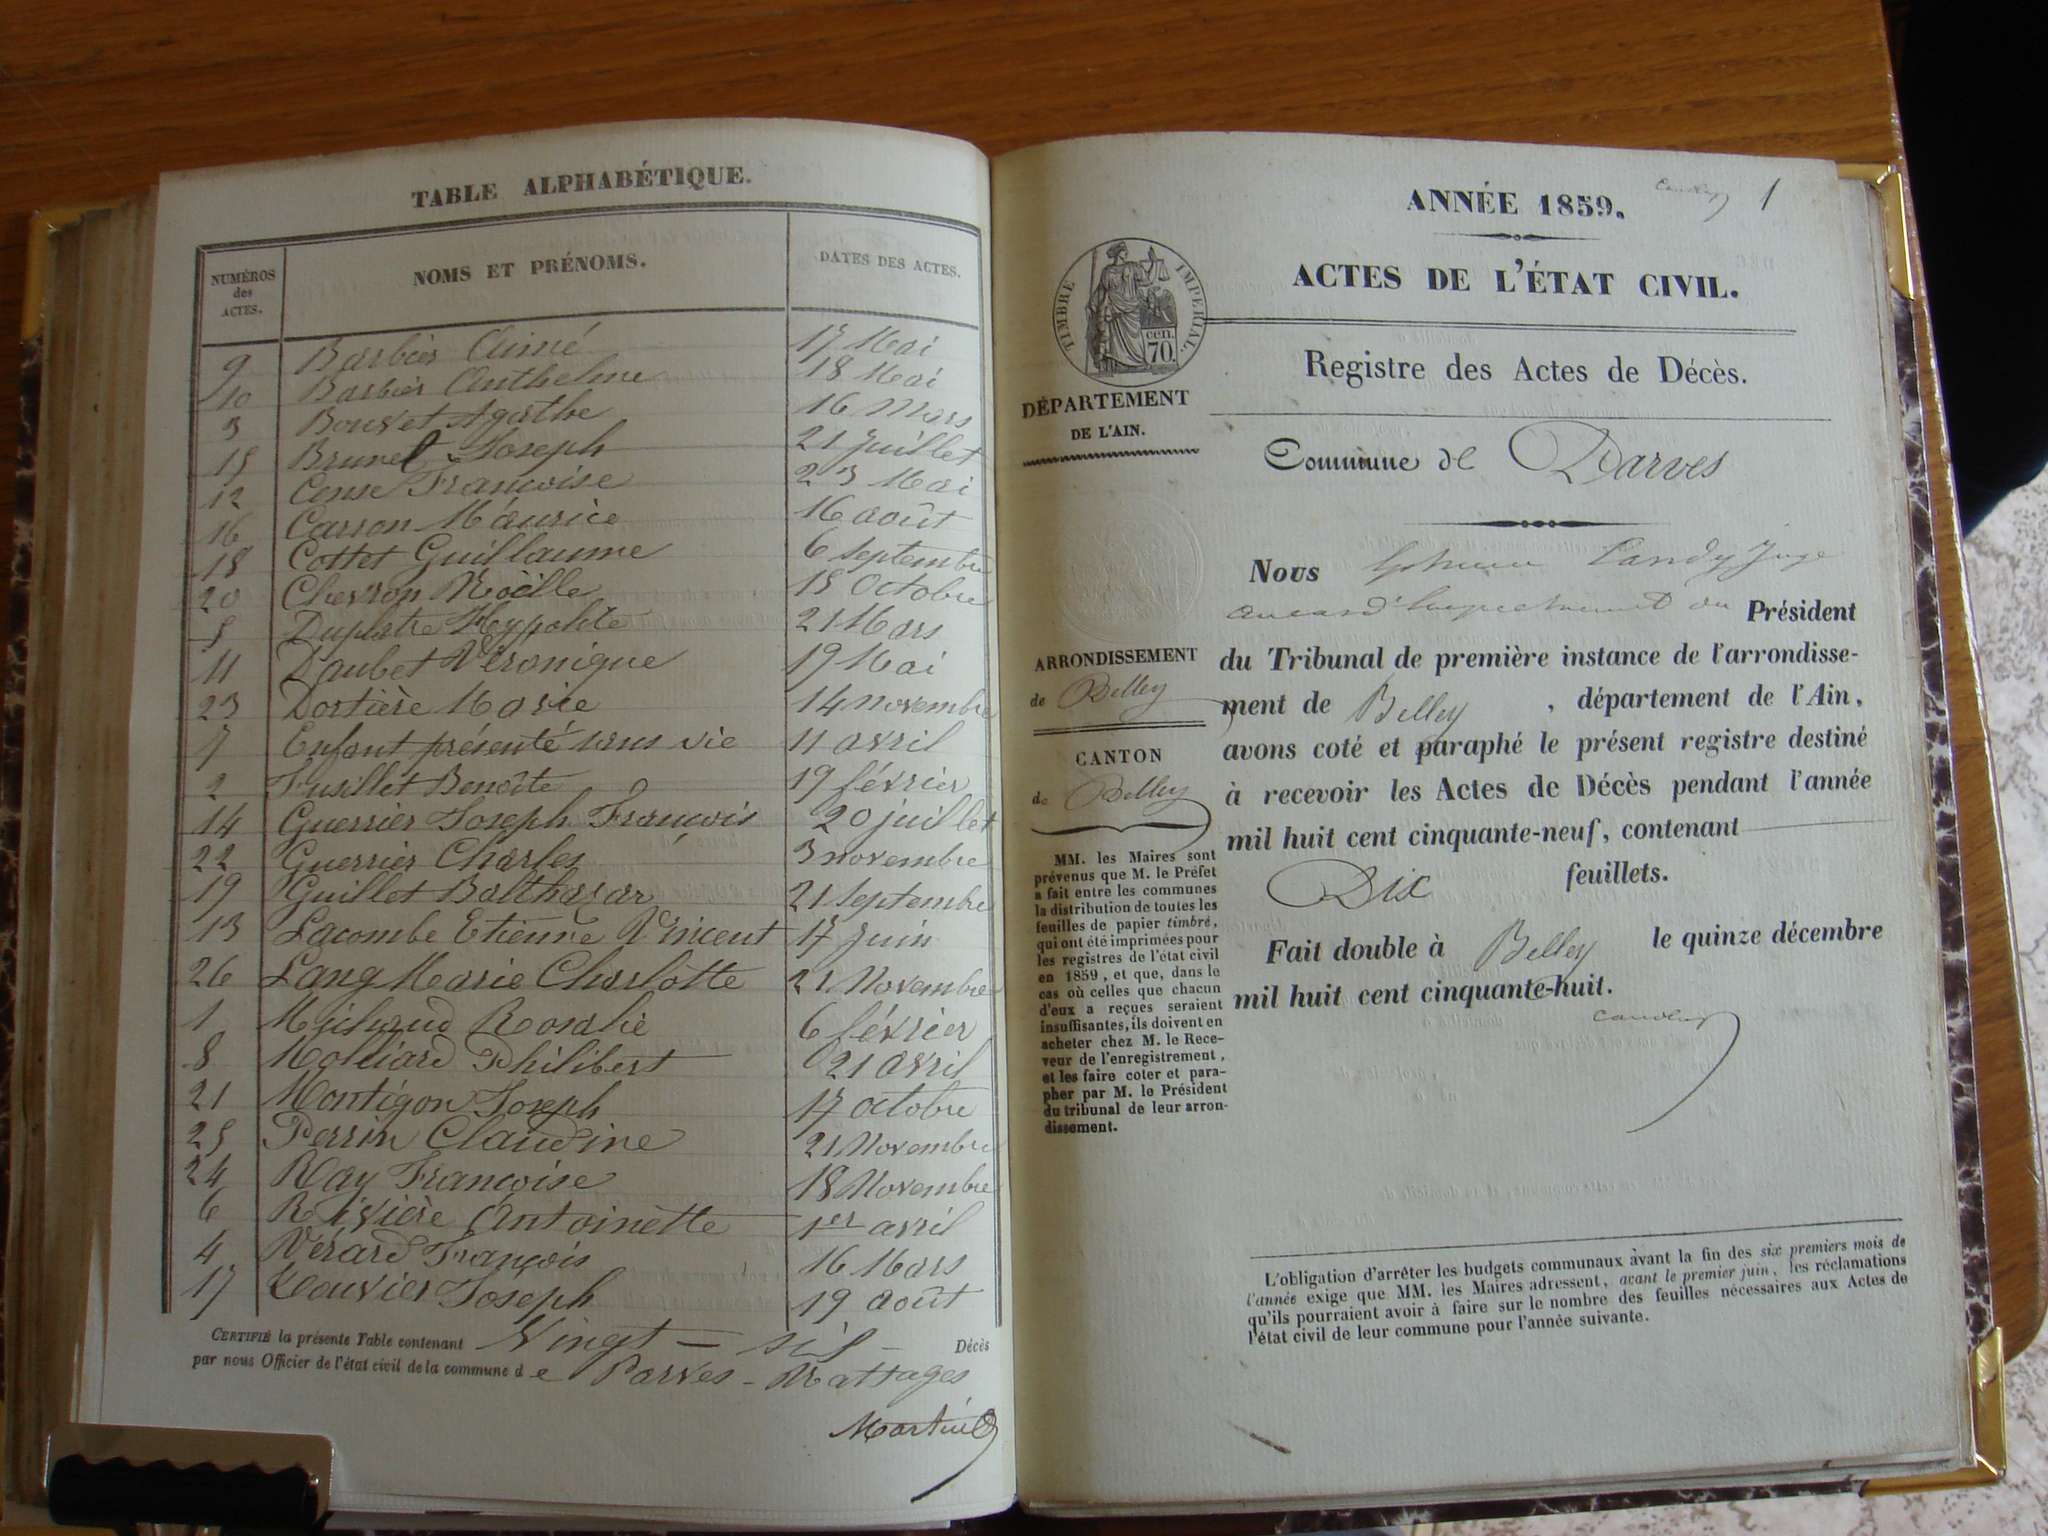 TABLE ALPHABÉTIQUE.
NUMÉROS des ACTES. NOMS ET PRÉNOMS. DATES DES ACTES.
9 Barbier Aimé 17 Mai
10 Barbier Anthelme 18 Mai
3 Bouvet Agathe 16 Mars
15 Brunet Joseph 21 juillet
12 Françoise 23 Mai
16 Carron Maurice 16 août
18 Cottet Guillaume 6 septembre
20 Chevron Noëlle 15 Octobre
5 Duplatre Hyppolite 21 Mars
11 Daubet Véronique 19 Mai
23 Dortière Marie 14 novembre
7 Enfant présenté sans vie 11 avril
2 Fusillet Benoîte 19 février
14 Guerrier Joseph François 20 juillet
22 Guerrier Charles 3 novembre
19 Guillet Balthazar 21 septembre
13 Lacombe Etienne Vincent 17 juin
26 Lang Marie Charlotte 21 Novembre
1 Michaud Rosalie 6 février
8 Molliard Philibert 21 avril
21 Montigon Joseph 17 octobre
25 Perrin Claudine 21 Novembre
24 Ray Françoise 18 Novembre
6 Rivière Antoinette 1er avril
4 Vérard François 16 Mars
17 Joseph 19 août
CERTIFIÉ la présente Table contenant Vingt-six Décès
par nous Officier de l'état civil de la commune de Parves-Nattages
ANNÉE 1859.
1
ACTES DE L'ÉTAT CIVIL.
TIMBRE IMPÉRIAL.
cen. 70.
Registre des Actes de Décès.
DÉPARTEMENT
DE L'AIN.
Commune de Parves
Nous Candy Juge
Président
du Tribunal de première instance de l'arrondisse-
ment de Belley, département de l'Ain,
avons coté et paraphé le présent registre destiné
à recevoir les Actes de Décès pendant l'année
mil huit cent cinquante-neuf, contenant
Dix feuillets.
Fait double à Belley le quinze décembre
mil huit cent cinquante-huit.
ARRONDISSEMENT
de Belley
CANTON
de Belley
MM. les Maires sont
prévenus que M. le Préfet
a fait entre les communes
la distribution de toutes les
feuilles de papier timbré,
qui ont été imprimées pour
les registres de l'état civil
en 1859, et que, dans le
cas où celles que chacun
d'eux a reçues seraient
insuffisantes, ils doivent en
acheter chez M. le Rece-
veur de l'enregistrement,
et les faire coter et para-
pher par M. le Président
du tribunal de leur arron-
dissement.
L'obligation d'arrêter les budgets communaux avant la fin des six premiers mois de
l'année exige que MM. les Maires adressent, avant le premier juin, les réclamations
qu'ils pourraient avoir à faire sur le nombre des feuilles nécessaires aux Actes de
l'état civil de leur commune pour l'année suivante.